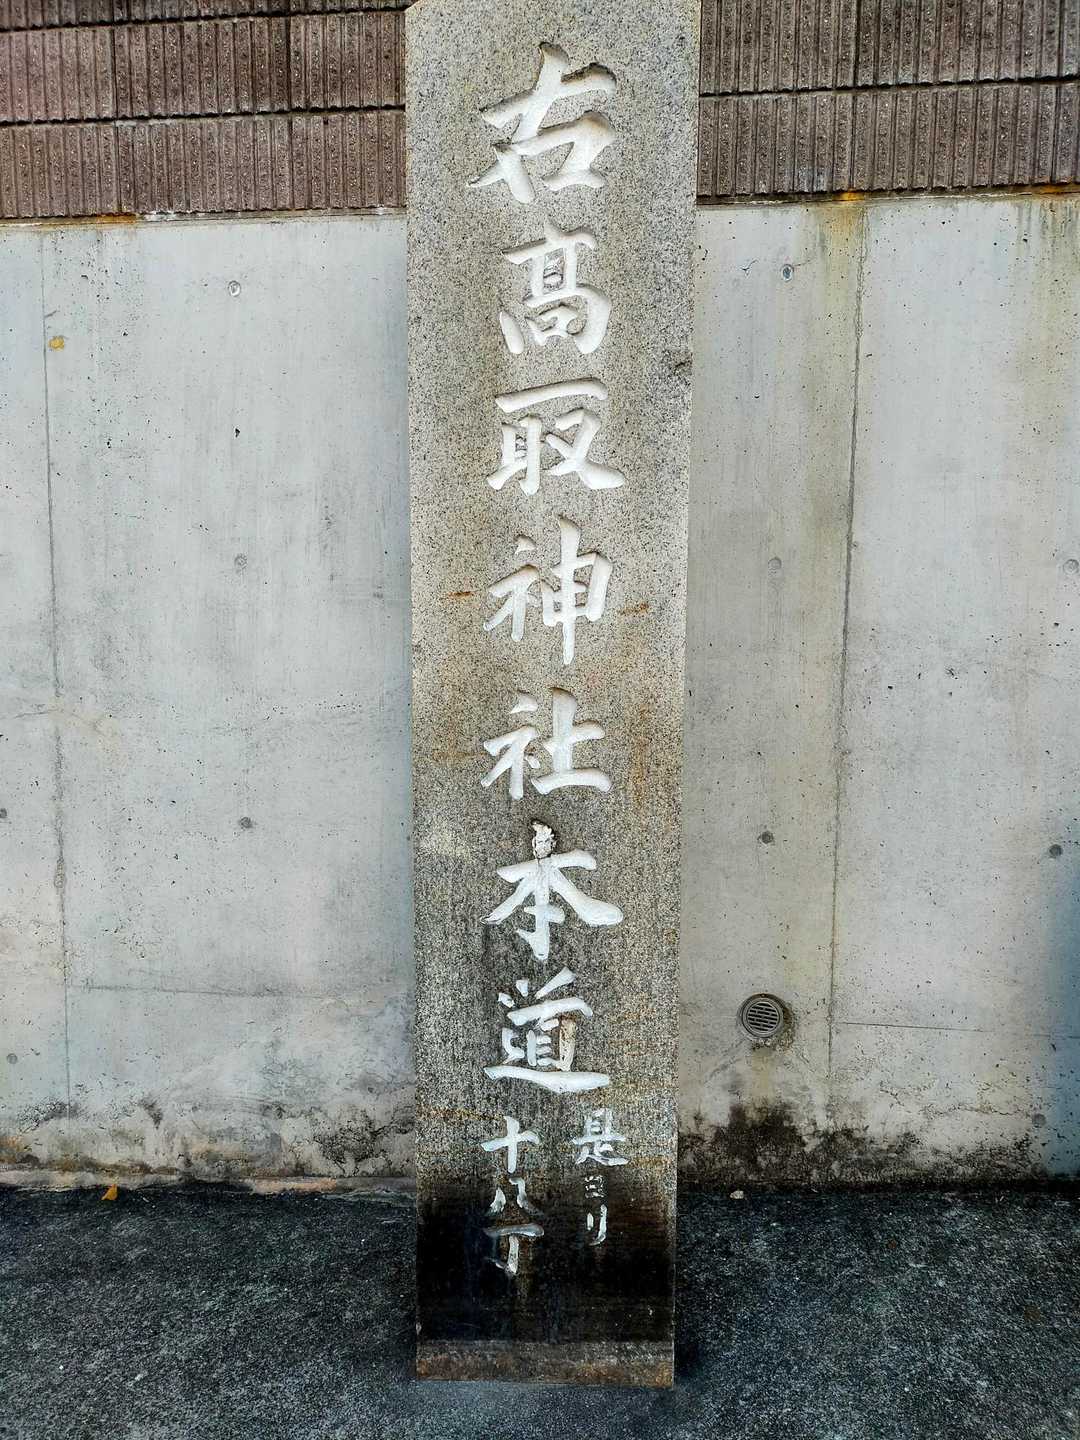 右高取神社本道
是ヨリ
十八丁